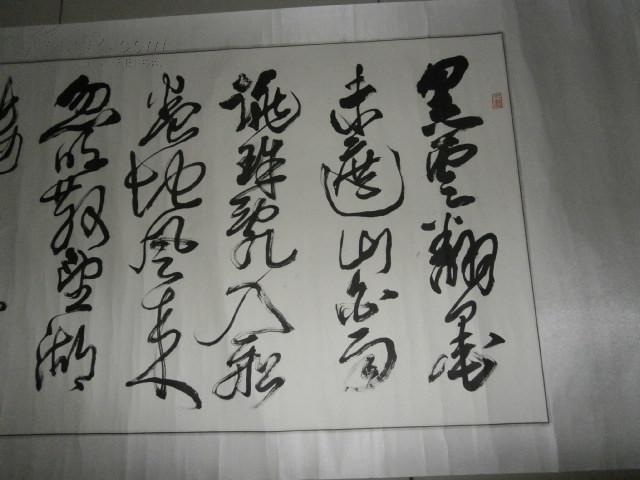 黑雲翻墨
未遮山白雨
跳珠亂入船
卷地風来
忽吹散望湖